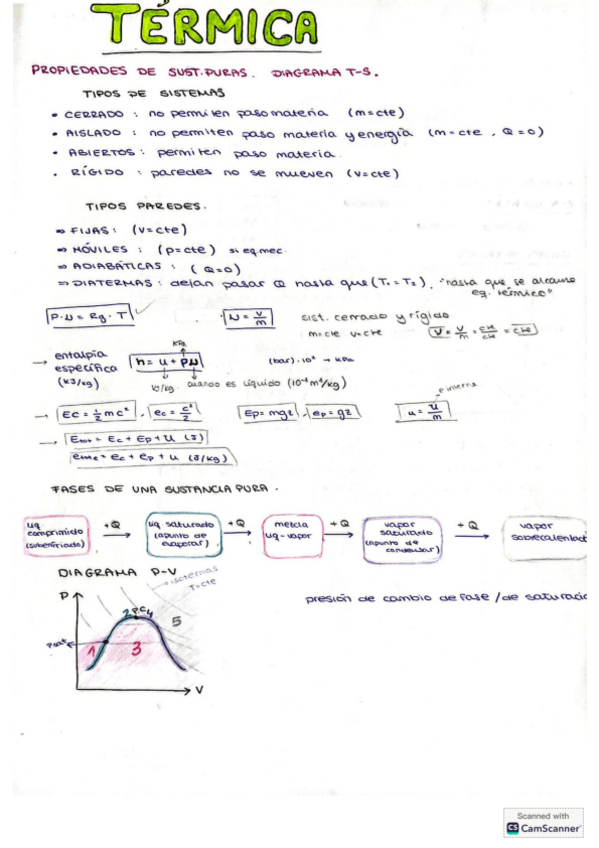 TÉRMICA
PROPIEDADES DE SUST. PURAS. DIAGRAMA T-S.
TIPOS DE SISTEMAS
• CERRADO : no permiten paso materia (m=cte)
• AISLADO : no permiten paso materia y energía (m=cte , Q=0)
• ABIERTOS : permiten paso materia.
• RÍGIDO : paredes no se mueven (V=cte)
TIPOS PAREDES.
⇒ FIJAS : (V=cte)
⇒ MÓVILES : (p=cte) si eq.mec.
⇒ ADIABÁTICAS : (Q=0)
⇒ DIATERMAS : dejan pasar Q hasta que (T₁=T₂). "hasta que se alcance eq. térmico"
P·v = Rg · T
v = V/m
sist. cerrado y rígido
m=cte V=cte
v = V/m = cte/cte = cte
→ entalpía específica (kJ/kg)
kPa
h = u + pv
kJ/kg
cuando es líquido (10⁻³ m³/kg)
(bar)·10² → kPa
→ Ec = 1/2 mc² , ec = c²/2
Ep = mgz , ep = gz
u = U/m
e interna
→ Etot = Ec + Ep + U (J)
etot = ec + ep + u (J/kg)
FASES DE UNA SUSTANCIA PURA.
líq. comprimido (subenfriado)
+Q
líq. saturado (apunto de evaporar)
+Q
mezcla líq-vapor
+Q
vapor saturado (apunto de condensar)
+Q
vapor sobrecalentad
DIAGRAMA P-V
isotermas
T=cte
P
2 P.C 4
5
Psat
1
3
V
presión de cambio de fase / de saturació
Scanned with
CS CamScanner